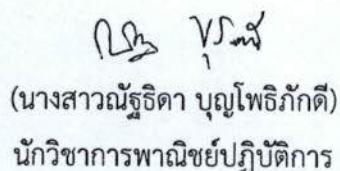 (นางสาวณัฐธิดา บุญโพธิภักดี)
นักวิชาการพาณิชย์ปฏิบัติการ